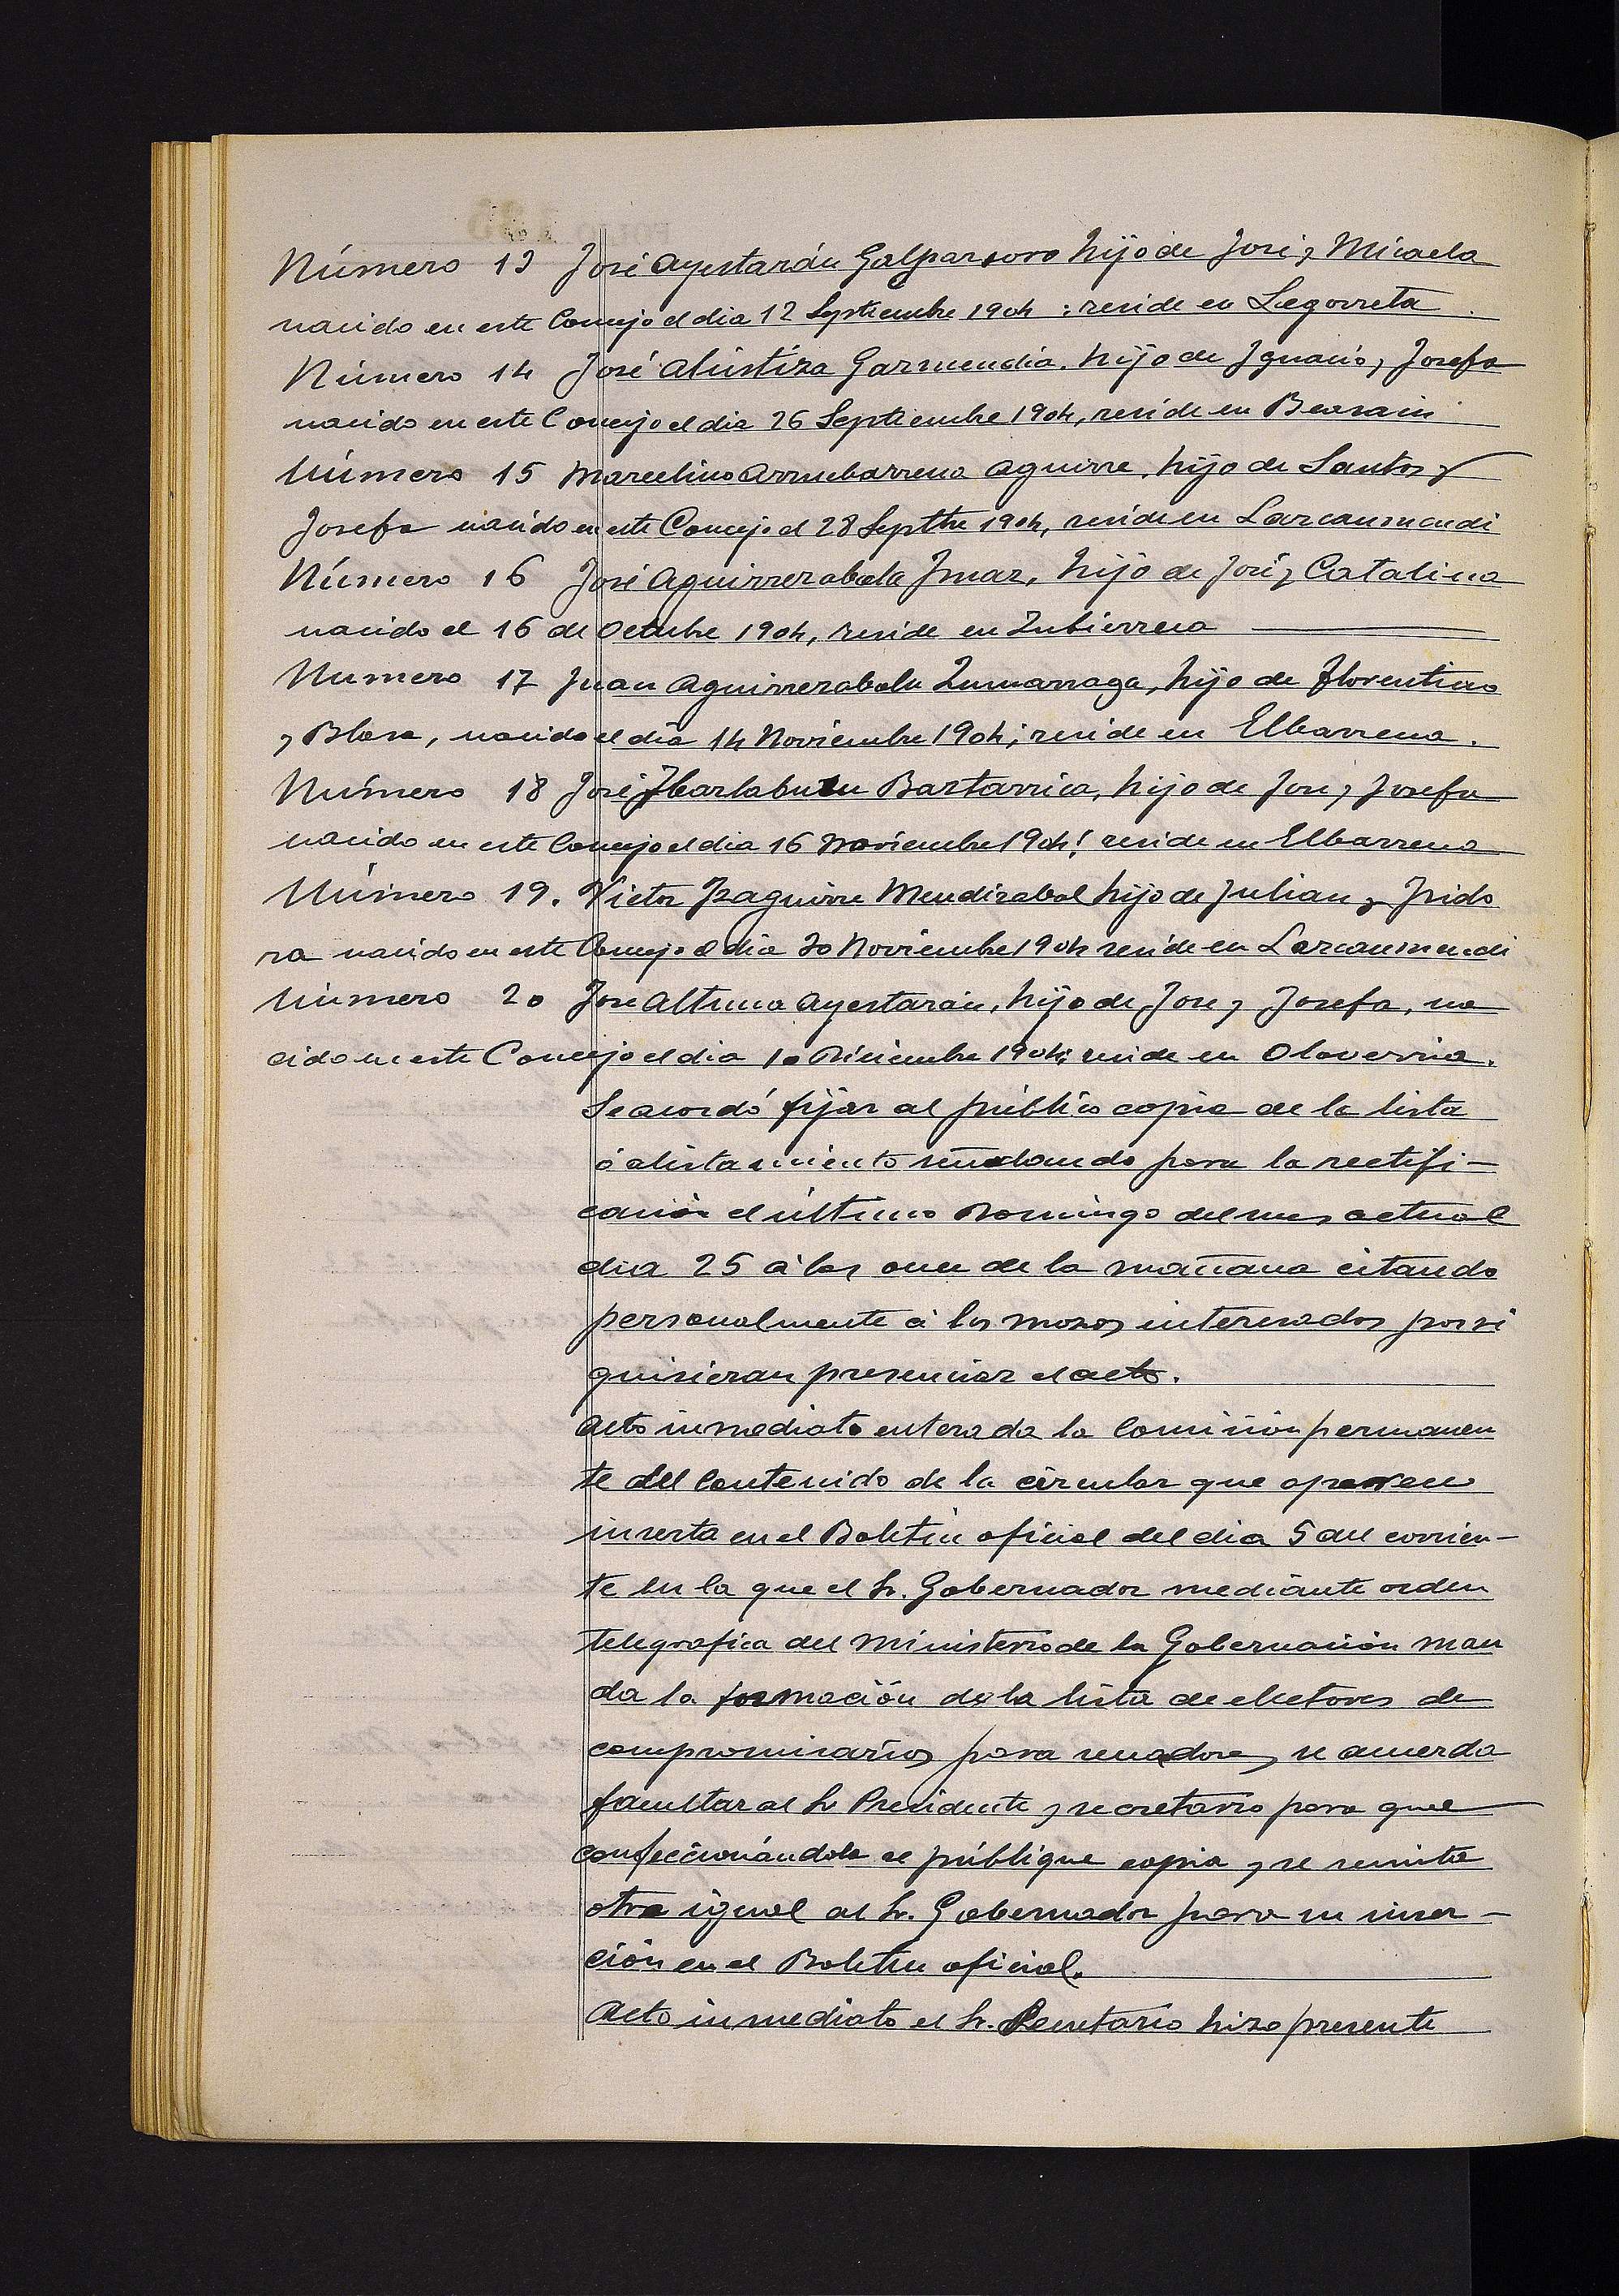 Número 13 José Ayestarán Galparsoro hijo de José y Micaela
nacido en este Concejo el dia 12 Septiembre 1904 : reside en Legorreta.
Número 14 José Alústiza Garmendia. hijo de Ignacio y Josefa
nacido en este Concejo el dia 26 Septiembre 1904, reside en Beasain
Número 15 Marcelino Arrubarrena Aguirre, hijo de Santos y
Josefa nacido en este Concejo el 28 Septbre 1904, reside en Larcaumundi
Número 16 José Aguirrezabala Imaz, hijo de José y Catalina
nacido el 16 de Octubre 1904, reside en Zubierrena
Numero 17 Juan Aguirrezabala Zumarraga, hijo de Florentino
y Blasa, nacido el dia 14 Noviembre 1904; reside en Elbarrena.
Número 18 José Ibarlaburu Baztarrica, hijo de José y Josefa
nacido en este Concejo el dia 16 Noviembre 1904: reside en Elbarrena
Número 19. Victor Izaguirre Mendizabal hijo de Julian y Isido
ra nacido en este Concejo el dia 30 Noviembre 1904 reside en Larcaumundi
Número 20 José Altuna Ayestarán, hijo de José y Josefa, na
cido en este Concejo el dia 10 Diciembre 1904; reside en Olaverria.
Se acordó fijar al público copia de la lista
ó alistamiento señalando para la rectifi-
cación el último Domingo del mes actual
dia 25 á las once de la mañana citando
personalmente á los mozos interesados por si
quisieran presenciar el acto.
Acto inmediato enterada la Comisión permanen
te del contenido de la circular que aparece
inserta en el Boletin oficial del dia 5 del corrien-
te en la que el Sr. Gobernador mediante orden
telegrafica del Ministerio de la Gobernación man
da la formación de la lista de electores de
compromisarios para senadores, se acuerda
facultar al Sr Presidente y secretario para que
confeccionándola se públique copia y se remita
otra igual al Sr. Gobernador para su inser-
ción en el Boletin oficial.
Acto inmediato el Sr. Secretario hizo presente